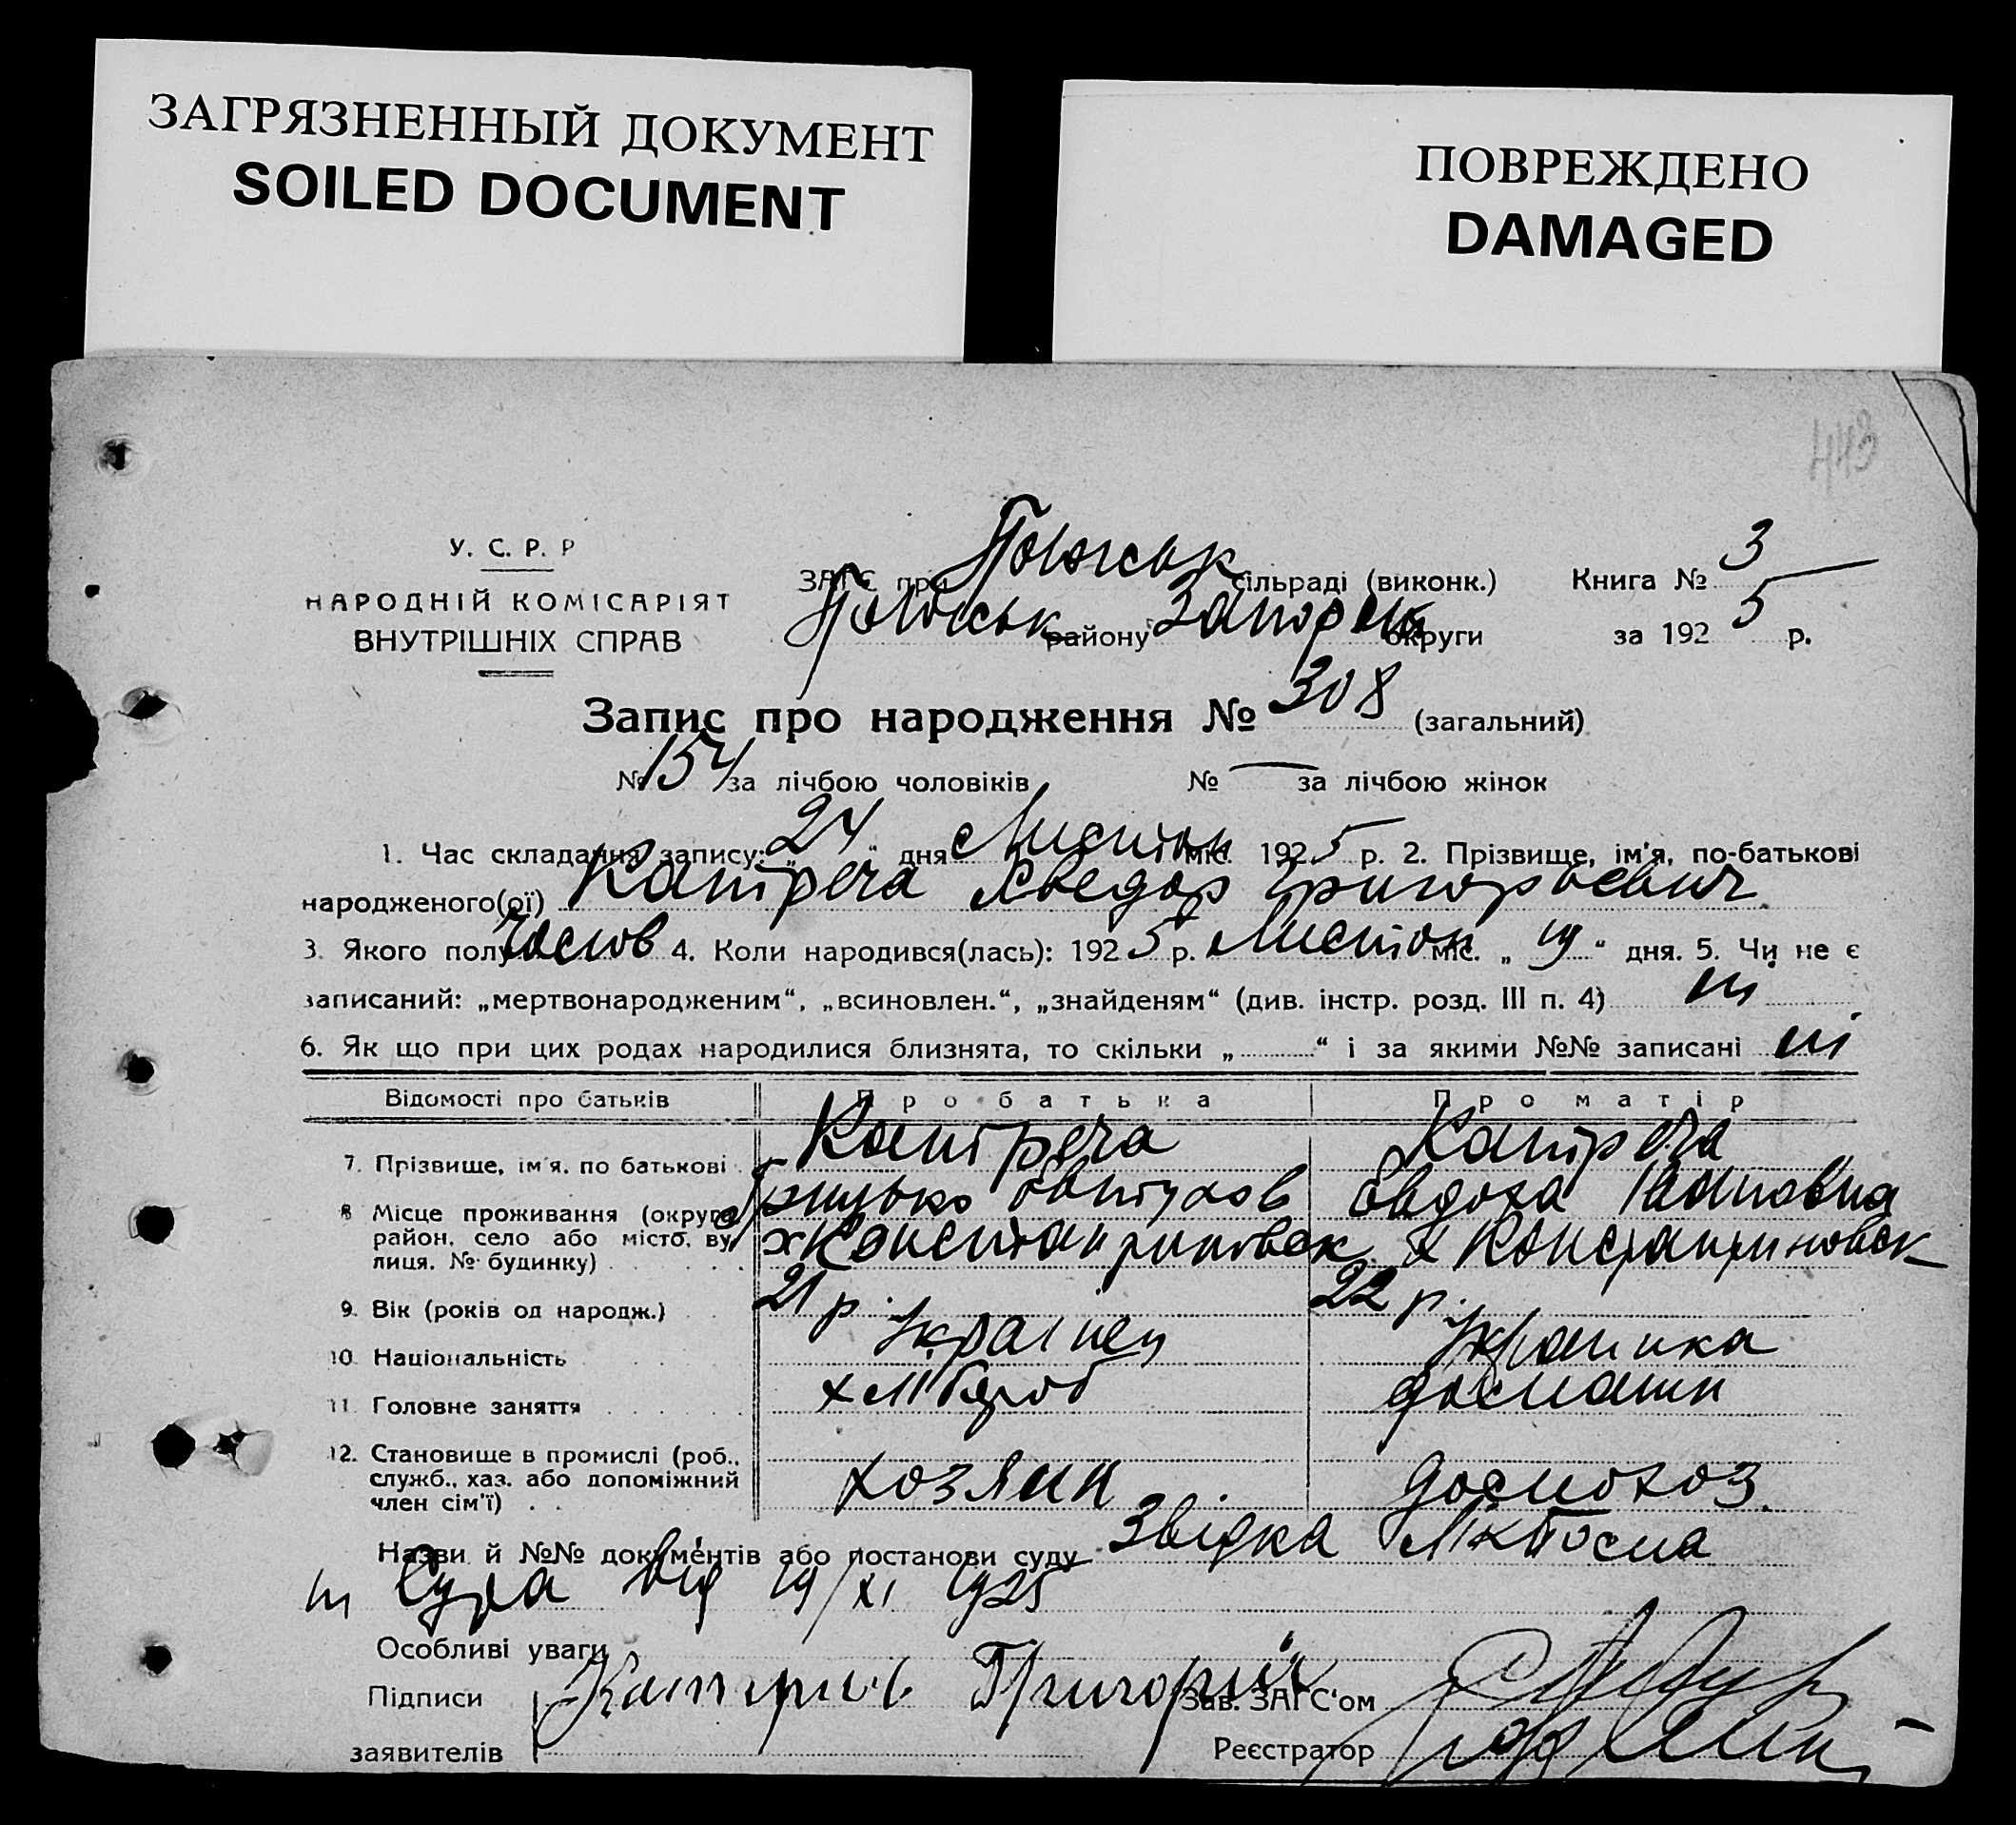 ЗАГРЯЗНЕННЫЙ ДОКУМЕНТ
SOILED DOCUMENT
ПОВРЕЖДЕНО
DAMAGED
443
У. С. Р. Р
НАРОДНІЙ КОМІСАРІЯТ
ВНУТРІШНІХ СПРАВ
ЗАГС при сільраді (виконк.) Книга № 3
району Запорож округи за 1925 р.
Запис про народження № 308 (загальний)
№ 154 за лічбою чоловіків № — за лічбою жінок
1. Час складання запису: „24“ дня Листоп міс. 1925 р. 2. Прізвище, ім'я, по-батькові
народженого(ої) Катреча Хведор Григорьевич
3. Якого полу Чолов 4. Коли народився(лась): 1925 р. Листоп міс. „19“ дня. 5. Чи не є
записаний: „мертвонародженим“, „всиновлен.“, „знайденям“ (див. інстр. розд. III п. 4) ні
6. Як що при цих родах народилися близнята, то скільки „......“ і за якими №№ записані ні
Відомості про батьків Про батька Про матір
7. Прізвище, ім'я, по батькові Катреча Катреча
Грицько Евдоха Ивановна
8 Місце проживання (округа, район, село або місто, вулиця, № будинку) х Константиновск х Константиновск
9. Вік (років од народж.) 21 р. 22 р.
10. Національність Українец Українка
11. Головне заняття хлібороб домашн
12. Становище в промислі (роб., служб., хаз. або допоміжний член сім'ї) хозяин домохоз.
Назви й №№ документів або постанови суду Звідка
від 19/XI 1925
Особливі уваги
Підписи Григорий Зав. ЗАГС'ом
заявителів Реєстратор